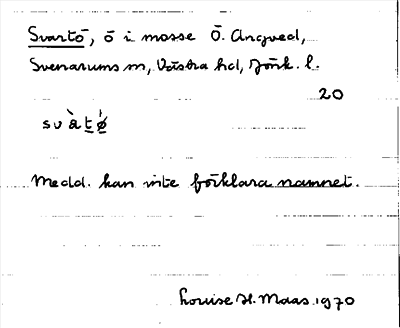 Svartö, ö i mosse Ö. Angved,
Svenarums sn, Västra hd, Jönk. l.
20
svàt̲ø̲̍
Medd. kan inte förklara namnet.
Louise H. Maas 1970